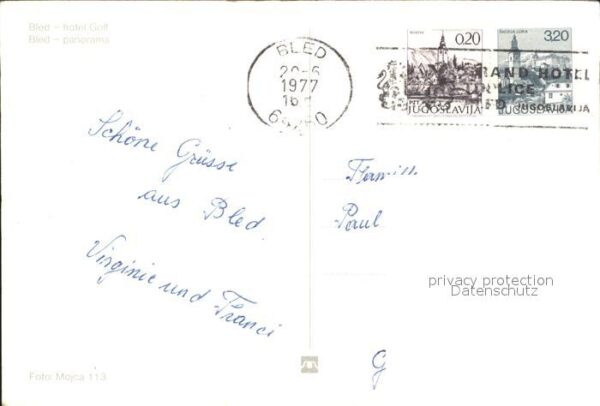 Bled - hotel Golf
Bled - panorama
BLED
1977
0,20
JUGOSLAVIJA
3,20
ŠKOFJA LOKA
JUGOSLAVIJA
GRAND HOTEL
JUGOSLAVIJA
Schöne Grüsse
aus Bled
Virginie und Franci
Paul
privacy protection
Datenschutz
G
Foto: Mojca 113